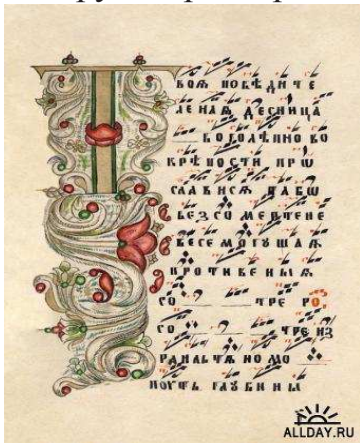 Т
ВОЯ ПОБѢДИЧЕ
ЛЕНАЯ ДЕСНИЦА
БОГОЛѢПНО ВО
КРѢПОСТИ ПРѠ
СЛАВИСЯ ПАБѠ
БЕЗСОМЕРТЕНЕ
ВЕСЕМОГУЩАЯ
ПРОТИВЕНЫЯ
СО ТРЕ РО
СО ТРЕ ИЗ
РАИЛЬТѦНОМО
ПОУТЬ ГЛУБИНЫ
ALLDAY.RU